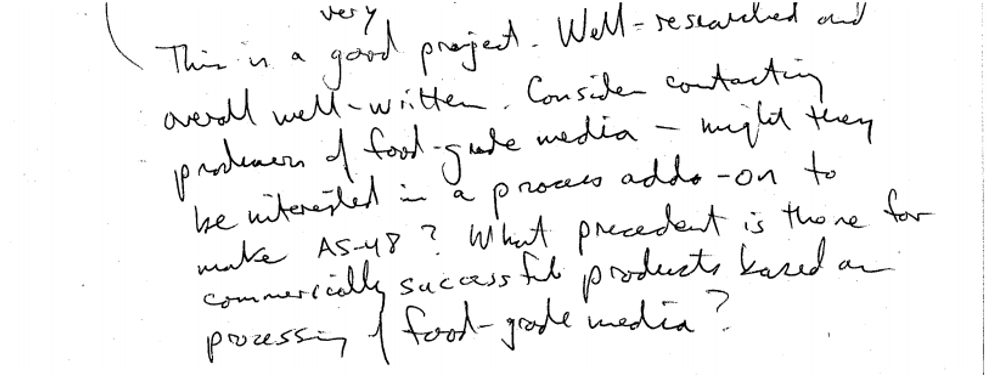 very
This is a good project. Well-researched and
overall well-written. Consider contacting
producers of food-grade media – might they
be interested in a process add-on to
make AS-48? What precedent is there for
commercially successful products based on
processing of food-grade media?